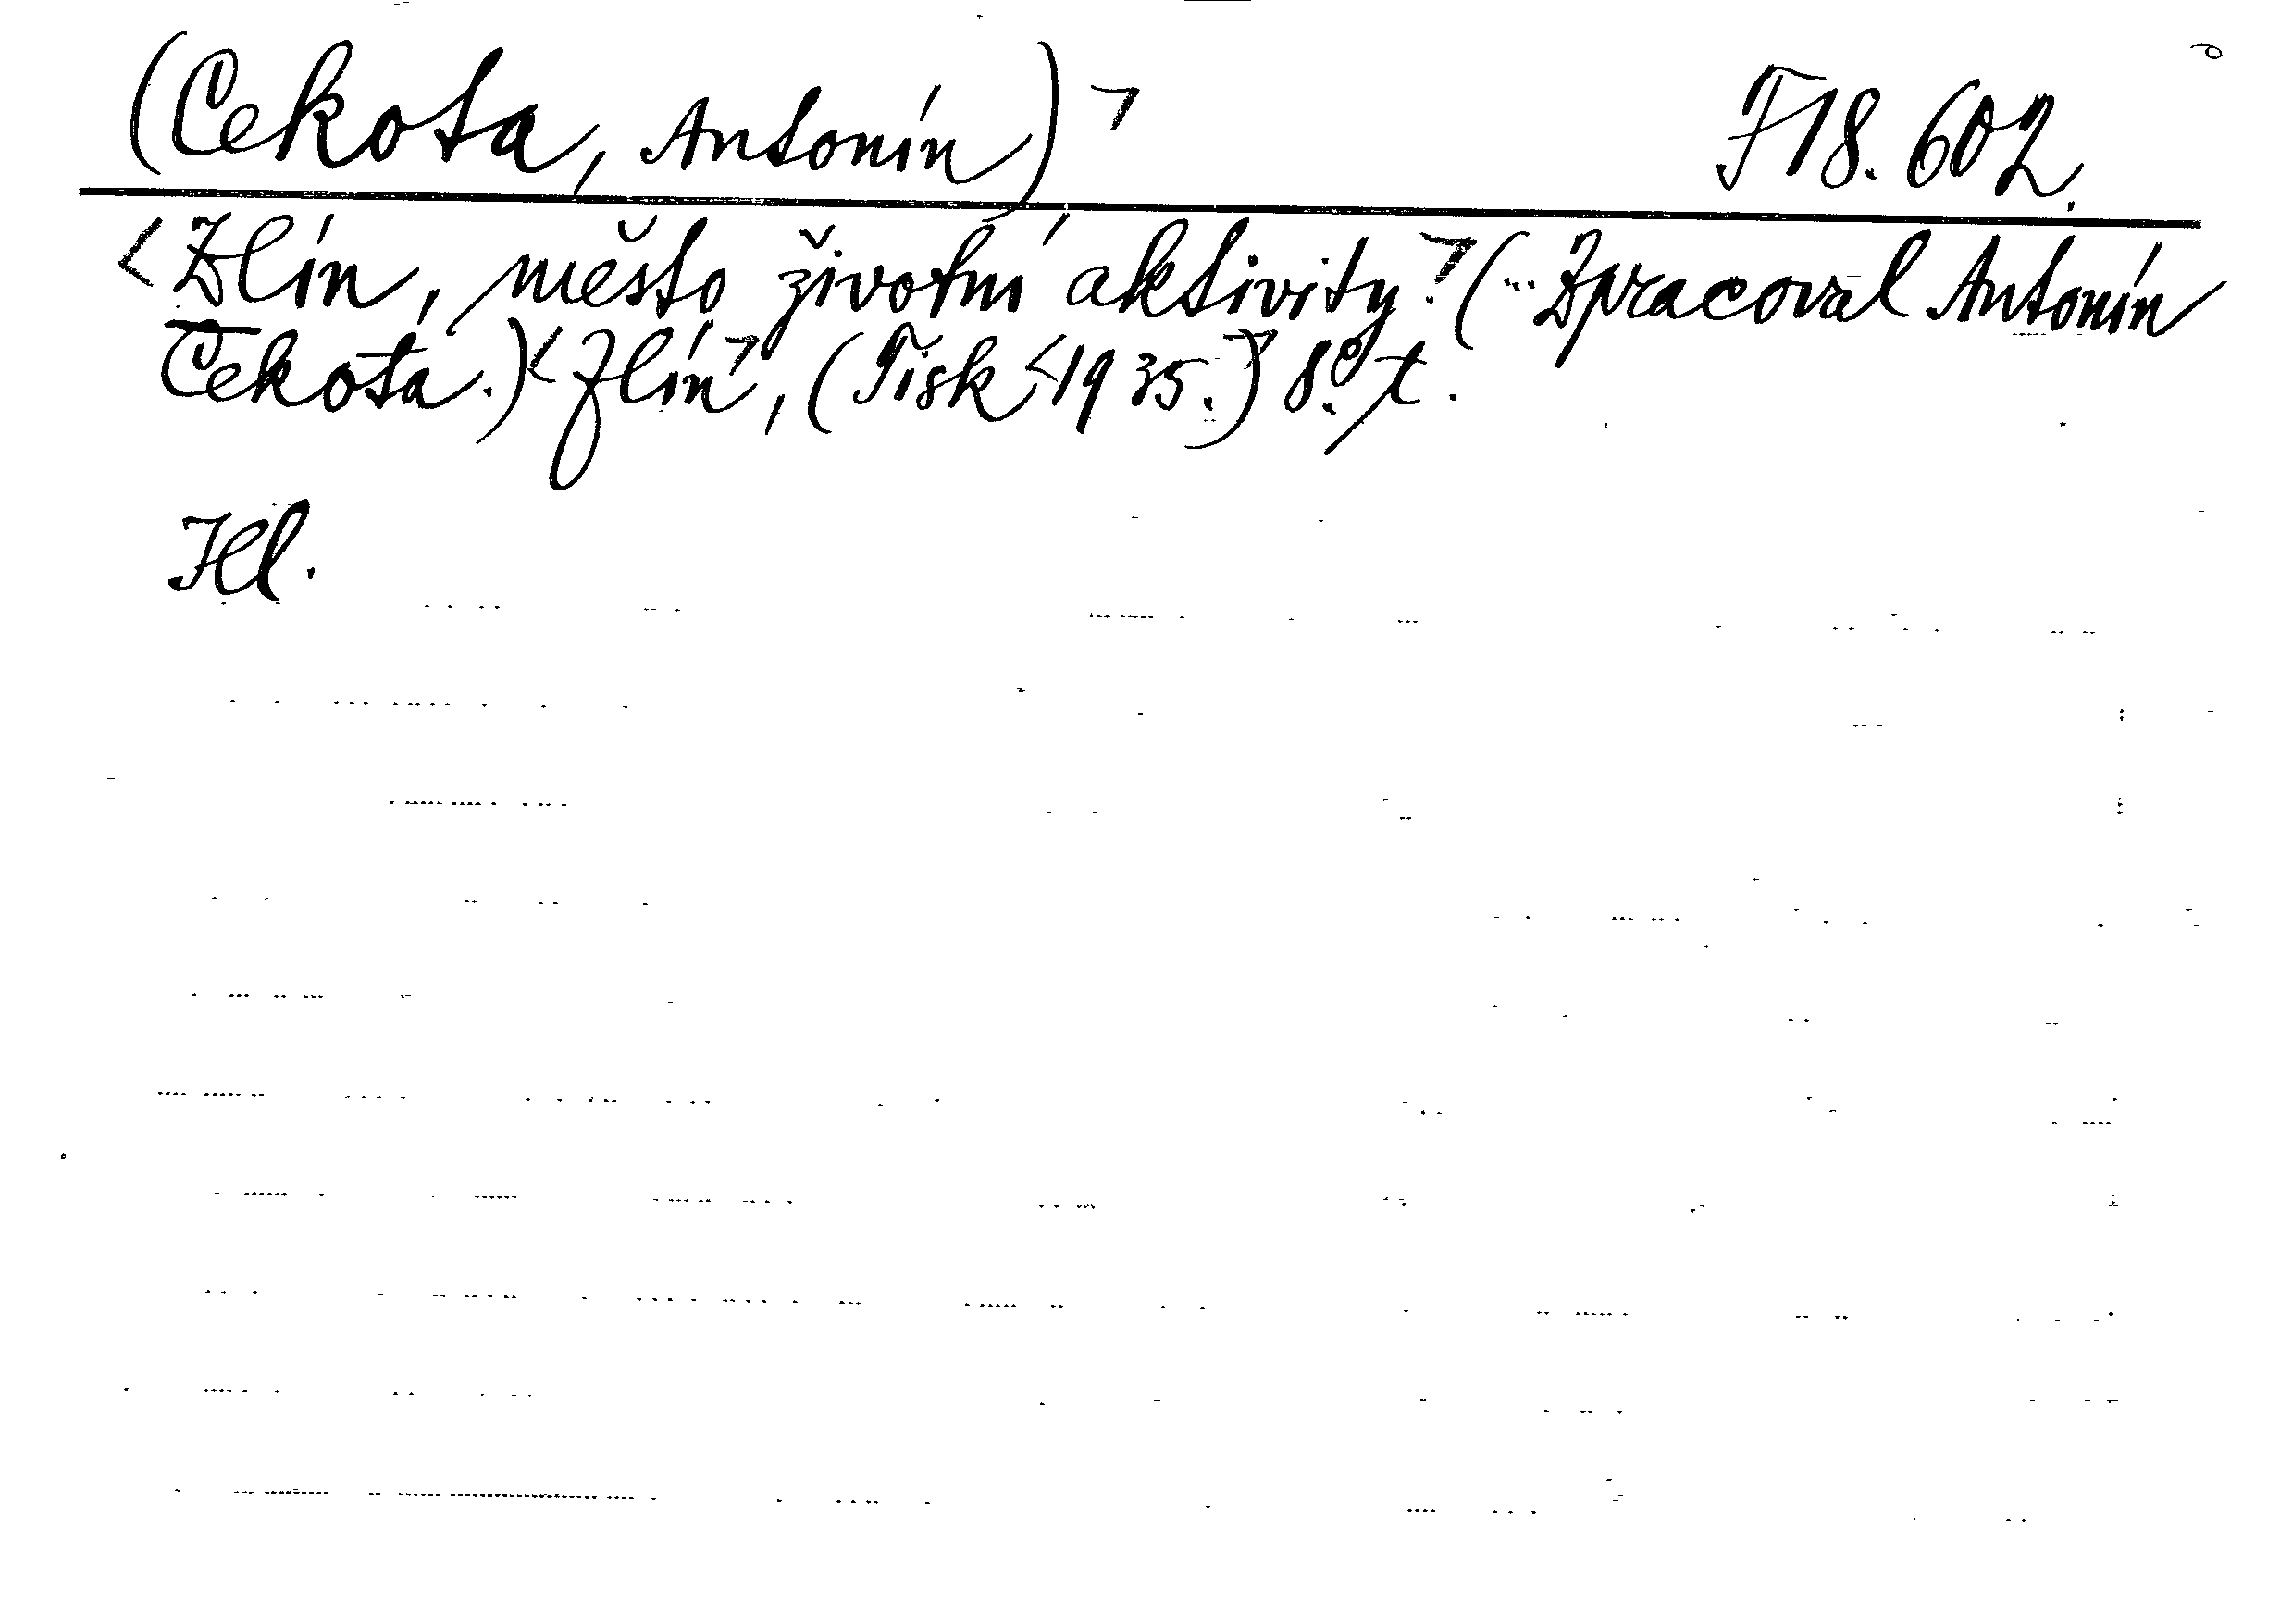 (Cekota, Antonín)> F18.602.
<Zlín, město životní aktivity.> (... Zpracoval Antonín
Cekota.) <Zlín>, (Tisk <1935.>) 8° t.